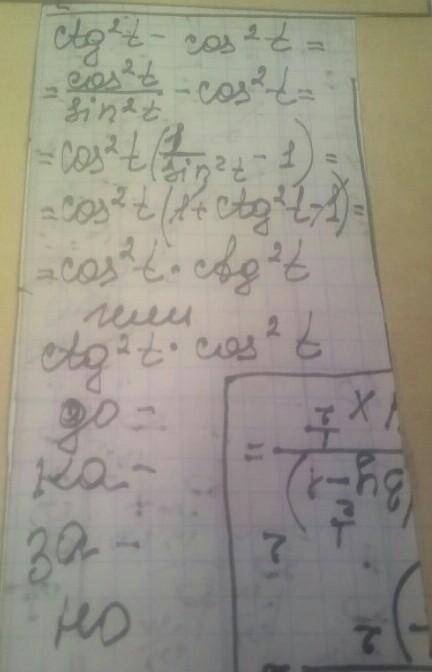 ctg²t - cos²t =
= cos²t/sin²t - cos²t =
= cos²t (1/sin²t - 1) =
= cos²t (1 + ctg²t - 1) =
= cos²t · ctg²t
или
ctg²t · cos²t
до-
ка-
за-
но